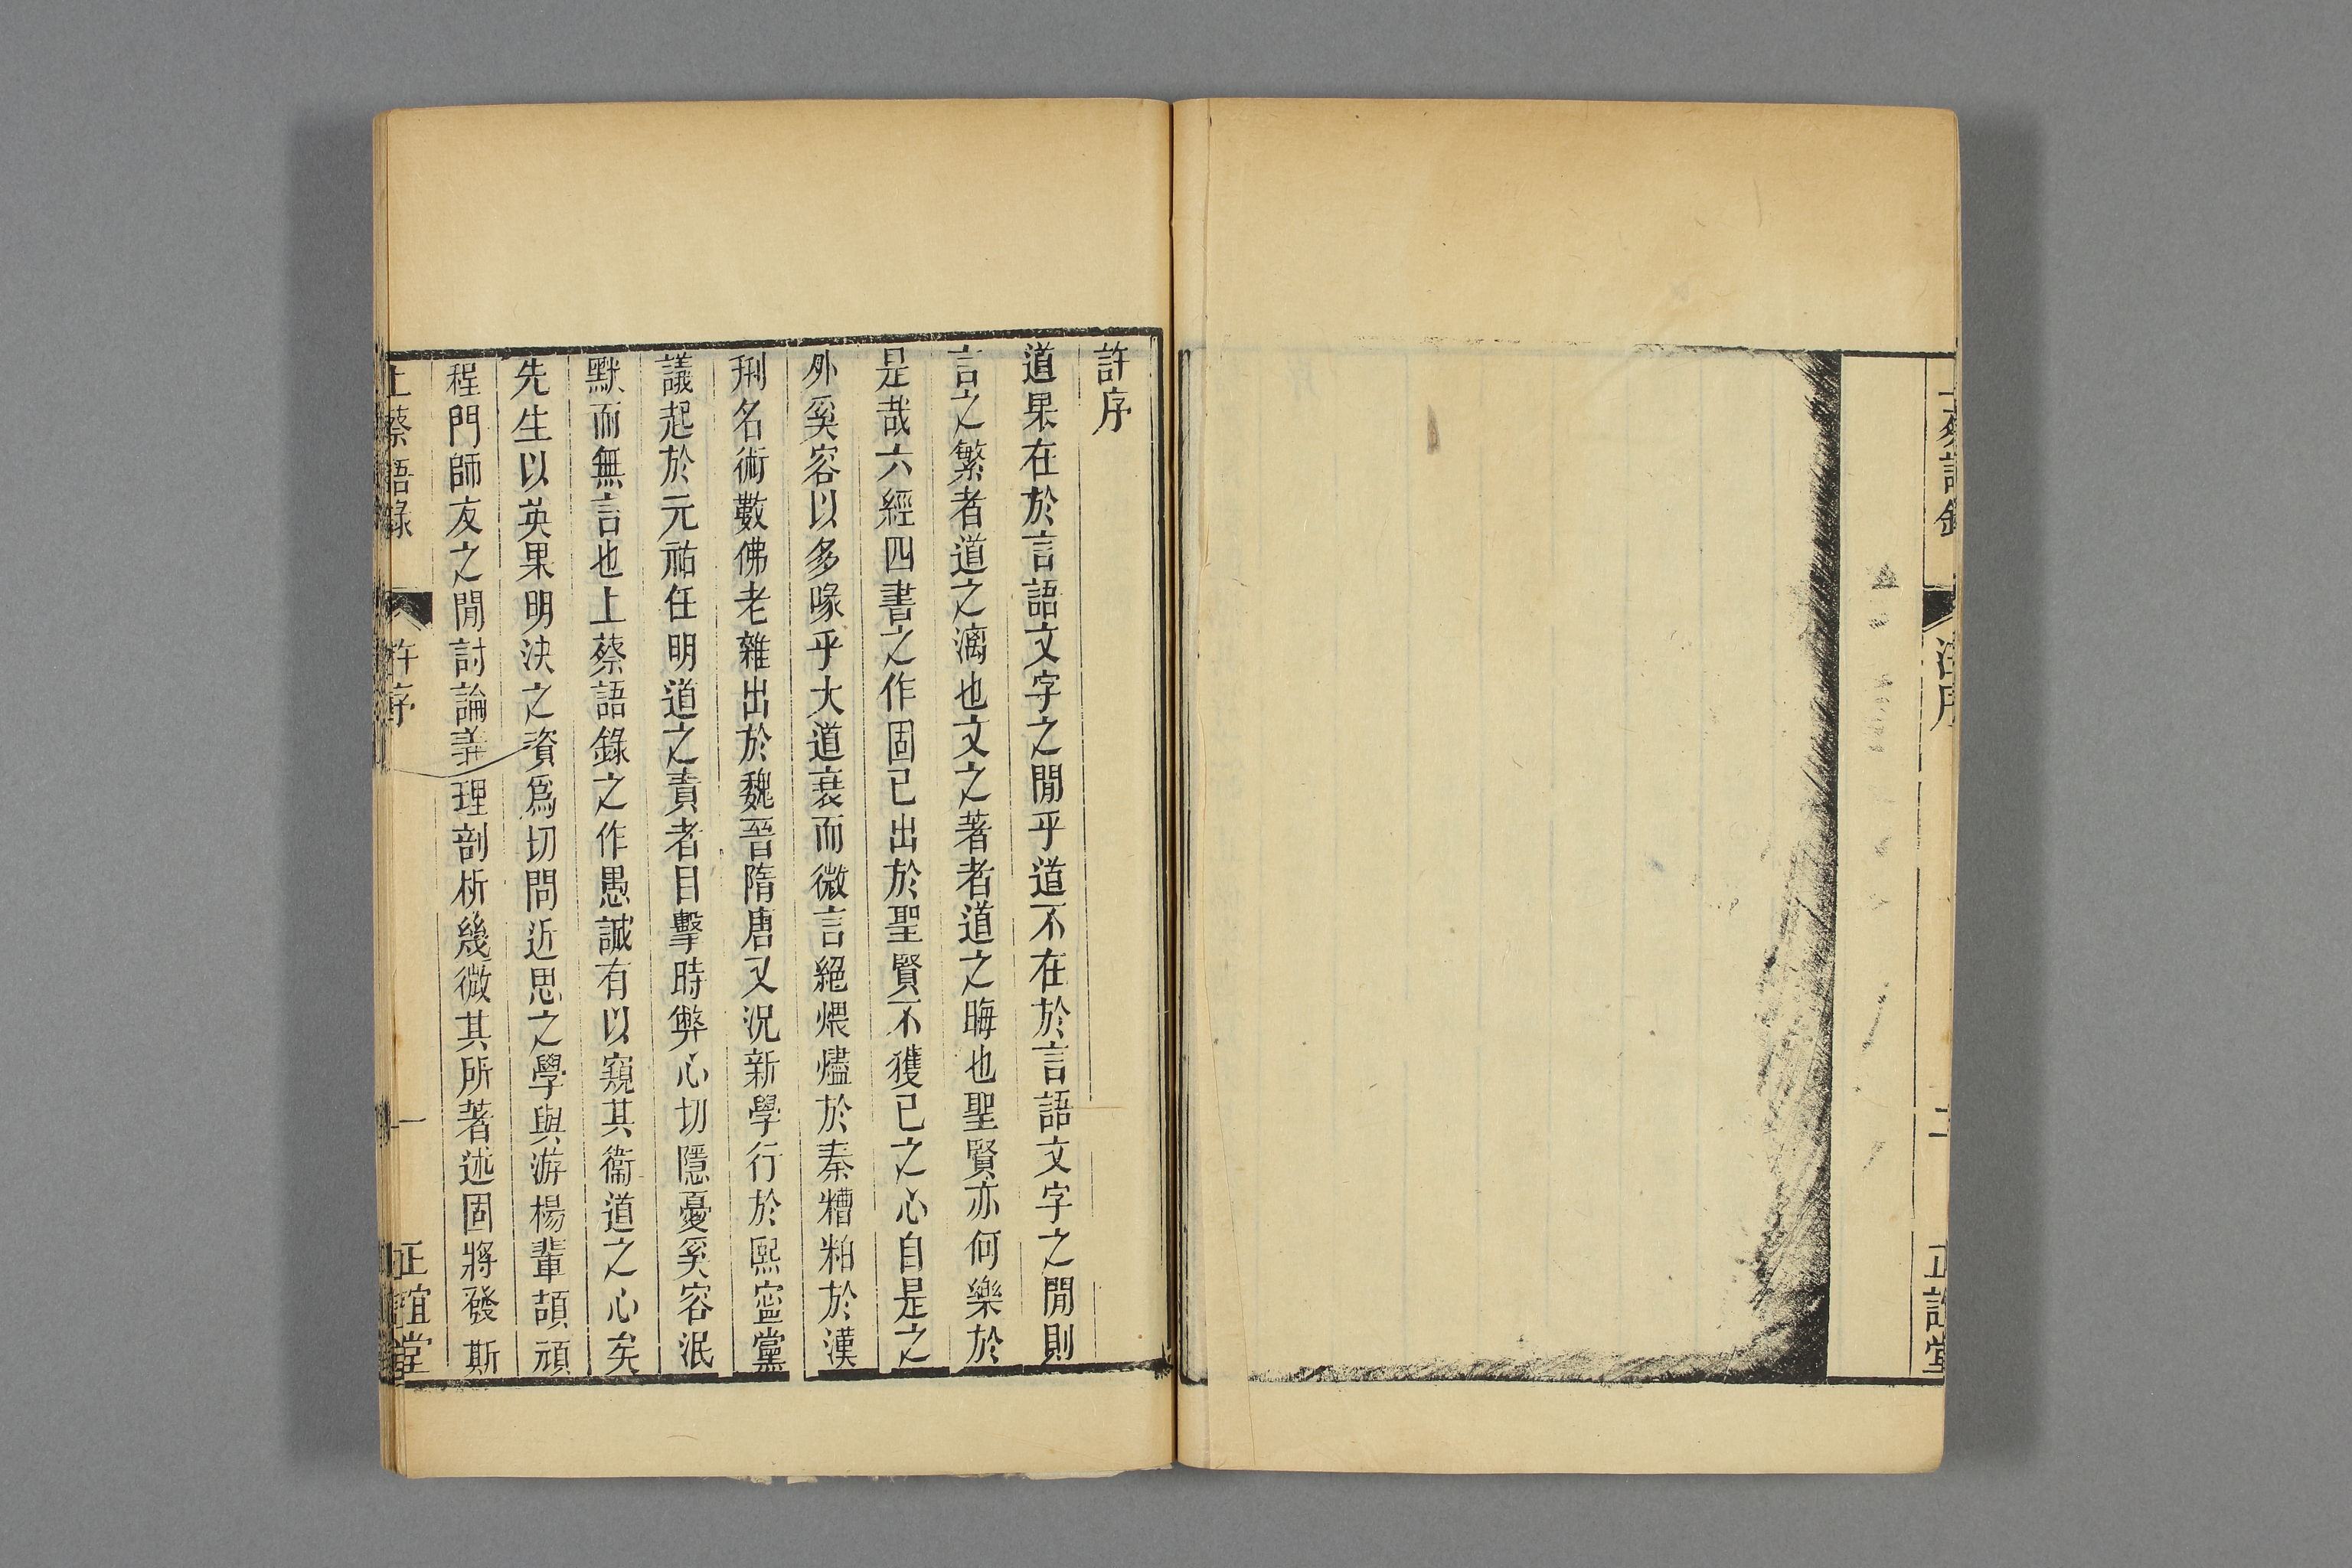 許序
道果在於言語文字之閒乎道不在於言語文字之閒則
言之繁者道之漓也文之著者道之晦也聖賢亦何樂於
是哉六經四書之作固已出於聖賢不獲已之心自是之
外奚容以多喙乎大道衰而微言絕煨燼於秦糟粕於漢
㓝名術數佛老雜出於魏晉隋唐又況新學行於熙寍黨
議起於元祐任明道之責者目擊時弊心切隱憂奚容泯
默而無言也上蔡語錄之作愚誠有以窺其衞道之心矣
先生以英果明決之資爲切問近思之學與游楊輩頡頏
程門師友之閒討論義理剖析幾微其所著述固將發斯
上蔡語錄
許序
一
正誼堂
上蔡語錄
序
二
正誼堂